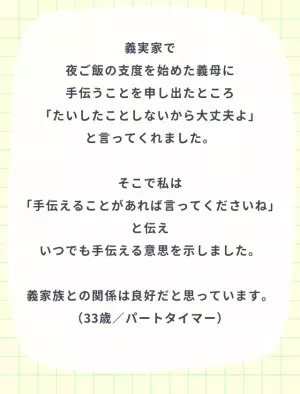 義実家で
夜ご飯の支度を始めた義母に
手伝うことを申し出たところ
「たいしたことしないから大丈夫よ」
と言ってくれました。
そこで私は
「手伝えることがあれば言ってくださいね」
と伝え
いつでも手伝える意思を示しました。
義家族との関係は良好だと思っています。
（33歳／パートタイマー）